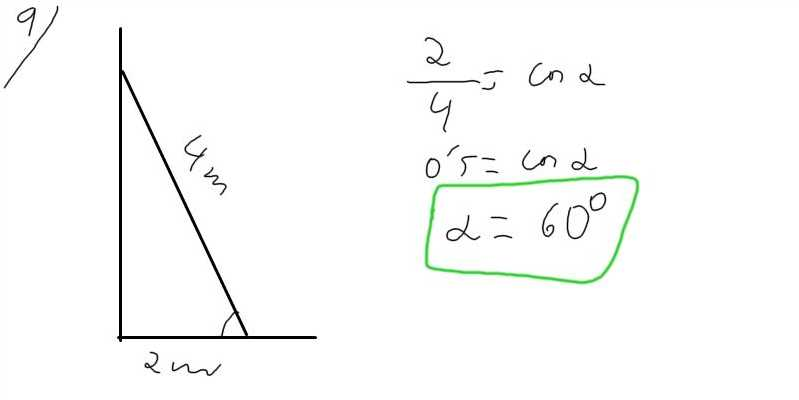 9/
4m
2m
2/4 = cos α
0'5 = cos α
α = 60°